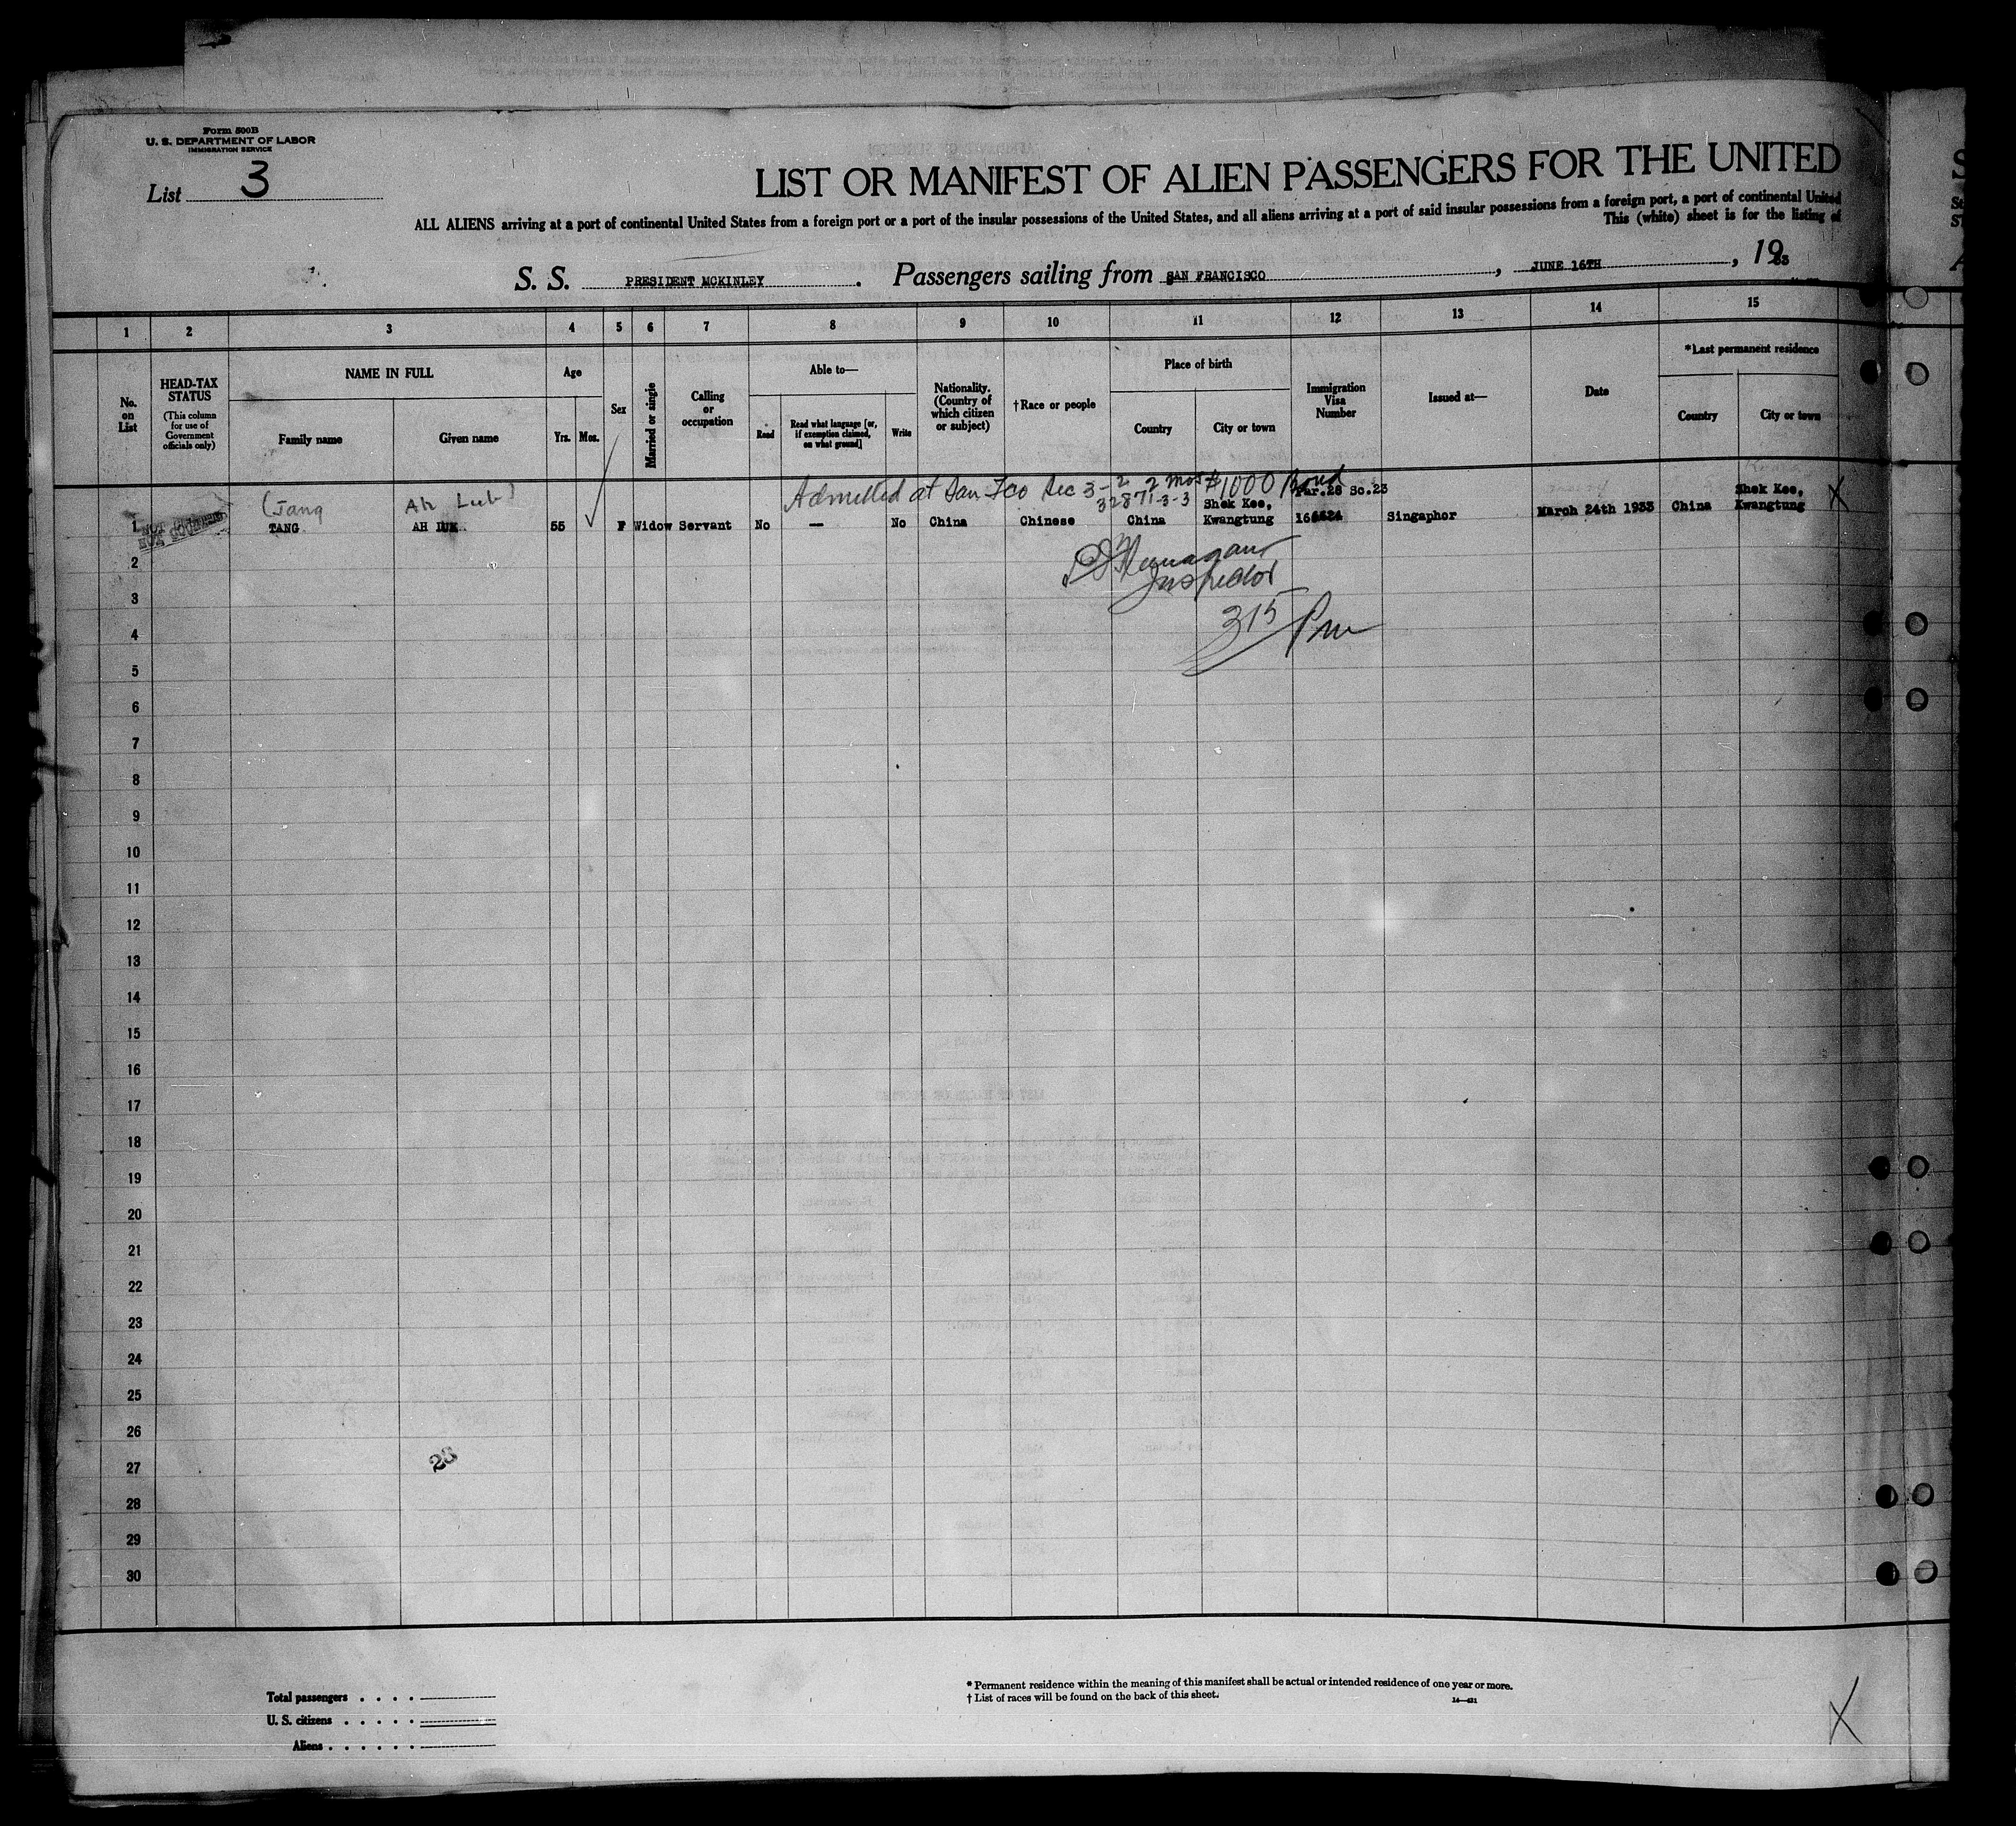 Form 500B
U. S. DEPARTMENT OF LABOR
IMMIGRATION SERVICE
List 3
LIST OR MANIFEST OF ALIEN PASSENGERS FOR THE UNITED
ALL ALIENS arriving at a port of continental United States from a foreign port or a port of the insular possessions of the United States, and all aliens arriving at a port of said insular possessions from a foreign port, a port of continental United
This (white) sheet is for the listing of
S. S. PRESIDENT MCKINLEY. Passengers sailing from SAN FRANCISCO, JUNE 16TH, 19
1 2 3 4 5 6 7 8 9 10 11 12 13 14 15
No. on List
HEAD-TAX STATUS
(This column for use of Government officials only)
NAME IN FULL
Family name
Given name
Age
Yrs. Mos.
Sex
Married or single
Calling or occupation
Able to—
Read
Read what language [or, if exemption claimed, on what ground]
Write
Nationality. (Country of which citizen or subject)
†Race or people
Place of birth
Country
City or town
Immigration Visa Number
Issued at—
Date
*Last permanent residence
Country
City or town
Admitted at San Fco Sec 3-2 2 mos $1000 Bond
(Tang Ah 32871-3-3 Shek Kee, Par.28 Sc.23 Shek Kee, X
1 TANG AH 55 F Widow Servant No — No China Chinese China Kwangtung Singaphor March 24th 1933 China Kwangtung
Inspector
315 Pm
2
3
4
5
6
7
8
9
10
11
12
13
14
15
16
17
18
19
20
21
22
23
24
25
26
27
28
29
30
28
Total passengers . . . .
U. S. citizens . . . . .
Aliens . . . . . .
* Permanent residence within the meaning of this manifest shall be actual or intended residence of one year or more.
† List of races will be found on the back of this sheet.
X